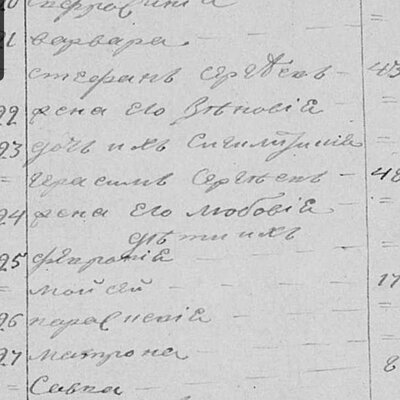 21 варвара
стефанъ Сергѣевъ 43
22 жена его Зѣновія
23 дочь ихъ
Герасимъ Сергѣевъ 48
24 жена его любовія
дѣти ихъ
25
Мойсей 17
26 параскевія
27 матрона
Савка 8